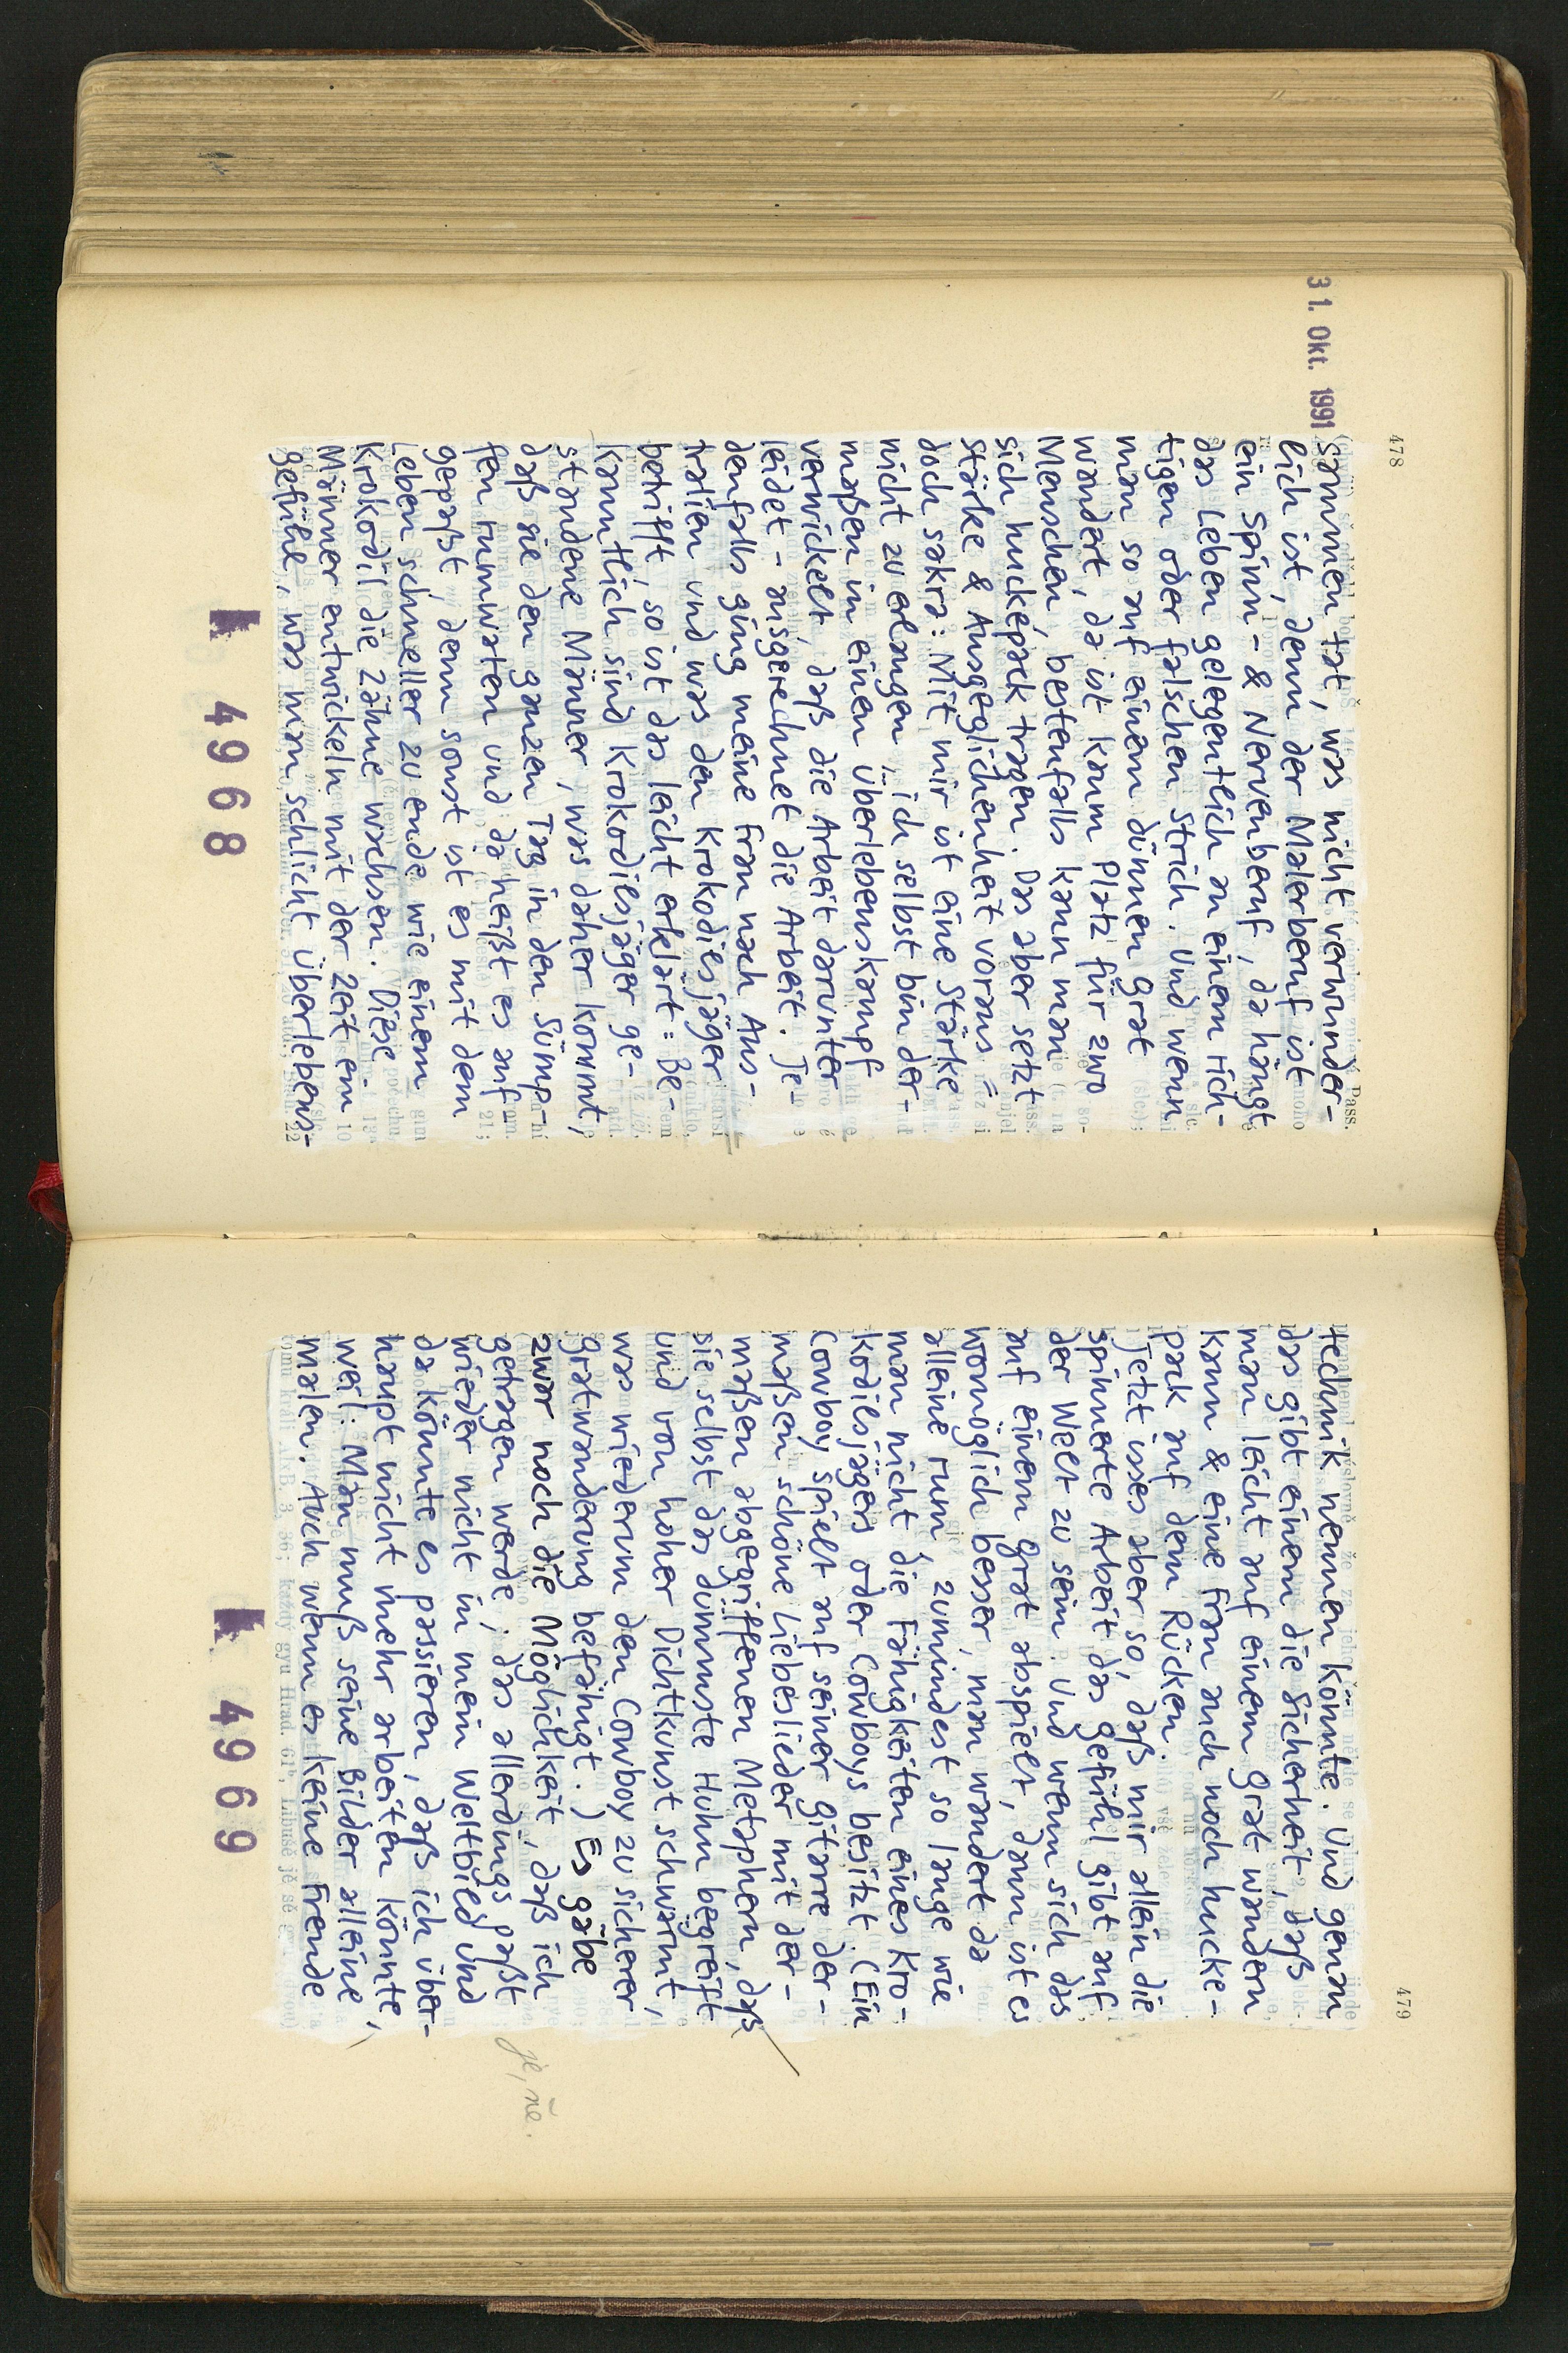 478
31. Okt. 1991
sammen tat, was nicht verwunder-
lich ist, denn der Malerberuf ist
ein Spinn- & Nervenberuf, da hängt
das Leben gelegentlich an einem rich-
tigen oder falschen Strich. Und wenn
man so auf einem dünnen Grat
wandert, da ist kaum Platz für zwo
Menschen, bestenfalls kann man
sich huckepack tragen. Das aber setzt
Stärke & Ausgeglichenheit voraus =
doch sakra: Mit mir ist eine Stärke
nicht zu erlangen, ich selbst bin der-
maßen in einen Überlebenskampf
verwickelt, daß die Arbeit darunter
leidet - ausgerechnet die Arbeit. Je-
denfalls ging meine Frau nach Aus-
tralien und was den Krokodiesjäger
betrifft, so ist das leicht erklärt = Be-
kanntlich sind Krokodilsjäger ge-
standene Männer, was daher kommt,
daß sie den ganzen Tag in den Sümp-
fen rumwaten und da heißt es auf-
gepaßt, denn sonst ist es mit dem
Leben schneller zu ende wie einem
Krokodil die Zähne wachsen. Diese
Männer entwickeln mit der Zeit ein
Gefühl, was man schlicht Überlebens-
4968
479
technik nennen könnte. Und genau
das gibt einem die Sicherheit, daß
man leicht auf einem Grat wandern
kann & eine Frau auch noch hucke-
pack auf dem Rücken.
Jetzt isses aber so, daß mir allein die
spinnerte Arbeit das Gefühl gibt auf
der Welt zu sein. Und wenn sich das
auf einem Grat abspielt, dann ist es
womöglich besser, man wandert da
alleine rum, zumindest so lange wie
man nicht die Fähigkeiten eines Kro-
kodilsjägers oder Cowboys besitzt. (Ein
Cowboy spielt auf seiner Gitarre der-
maßen schöne Liebeslieder mit der-
maßen abgegriffenen Metaphern, daß
sie selbst das dümmste Huhn begreift
und von hoher Dichtkunst schwärmt,
was wiederum den Cowboy zu sicherer
Gratwanderung befähigt.) Es gäbe
zwar noch die Möglichkeit, daß ich
getragen werde; das allerdings paßt
wieder nicht in mein Weltbild und
da könnte es passieren, daß ich über-
haupt nicht mehr arbeiten könnte,
weil: Man muß seine Bilder alleine
malen. Auch wenn es keine Freude
4969